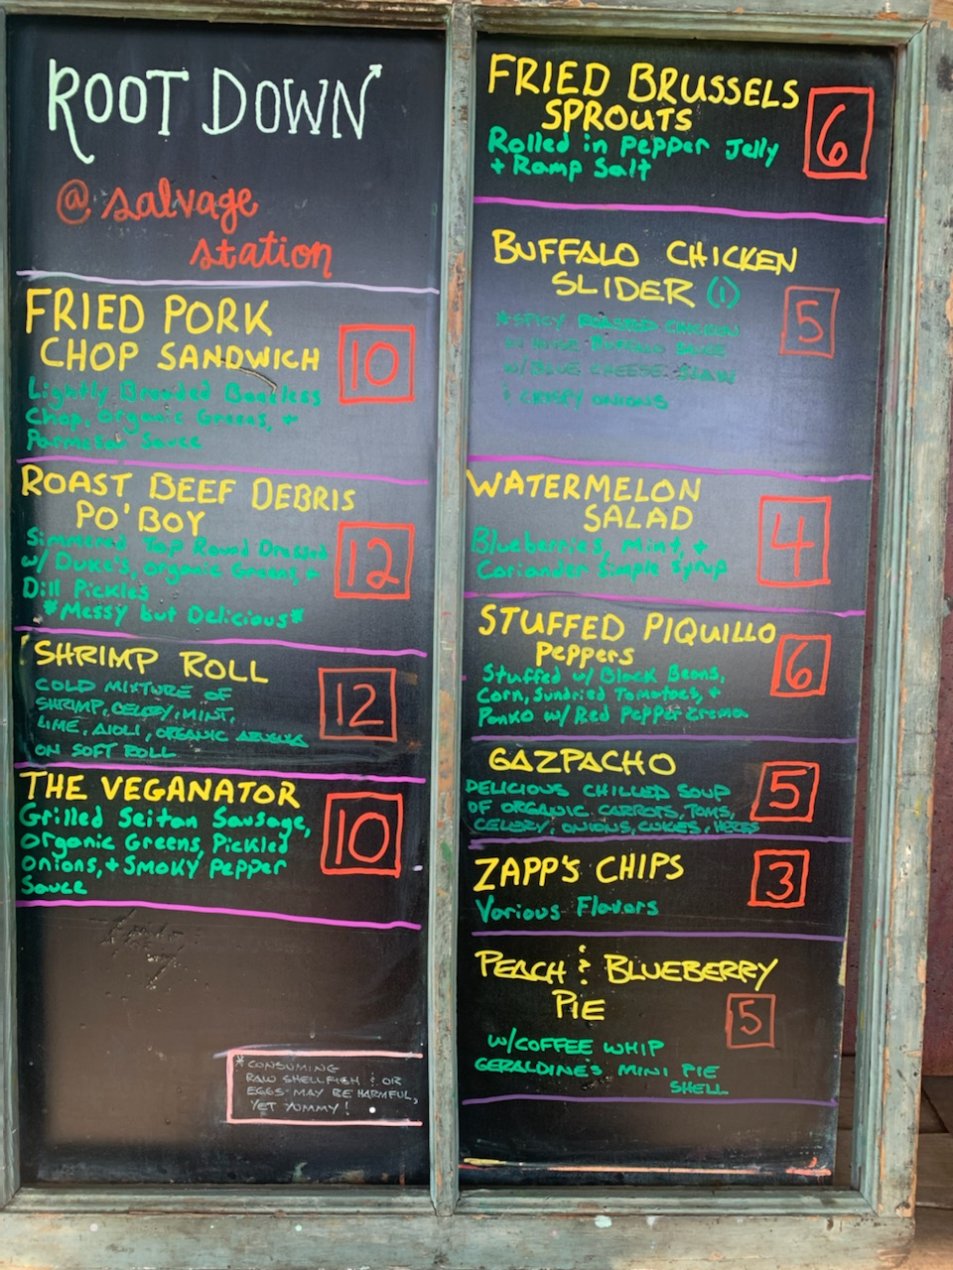 ROOT DOWN
@ salvage
station
FRIED PORK
CHOP SANDWICH
10
Lightly Breaded Boneless
Chop, Organic Greens, +
Parmesan Sauce
ROAST BEEF DEBRIS
PO'BOY
12
Simmered Top Round Dressed
w/ Duke's, Organic Greens, +
Dill Pickles
*Messy but Delicious*
SHRIMP ROLL
12
COLD MIXTURE OF
SHRIMP, CELERY, MINT,
LIME, AIOLI, ORGANIC ARUGULA
ON SOFT ROLL
THE VEGANATOR
10
Grilled Seitan Sausage,
Organic Greens, Pickled
Onions, + Smoky Pepper
Sauce
* CONSUMING
RAW SHELLFISH & OR
EGGS MAY BE HARMFUL,
YET YUMMY!
FRIED BRUSSELS
SPROUTS
6
Rolled in Pepper Jelly
+ Ramp Salt
BUFFALO CHICKEN
SLIDER (1)
5
*SPICY ROASTED CHICKEN
W/ HOUSE BUFFALO SAUCE
W/ BLUE CHEESE SLAW
& CRISPY ONIONS
WATERMELON
SALAD
4
Blueberries, Mint, +
Coriander Simple Syrup
STUFFED PIQUILLO
Peppers
6
Stuffed w/ Black Beans,
Corn, Sundried Tomatoes, +
Panko w/ Red Pepper Crema
GAZPACHO
5
DELICIOUS CHILLED SOUP
OF ORGANIC CARROTS, TOMS,
CELERY, ONIONS, CUKES, HERBS
ZAPP'S CHIPS
3
Various Flavors
PEACH & BLUEBERRY
PIE
5
W/COFFEE WHIP
GERALDINE'S MINI PIE
SHELL